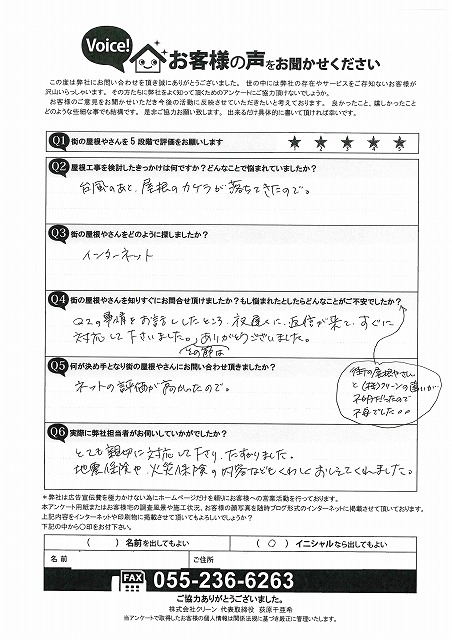 Voice!
お客様の声をお聞かせください
この度は弊社にお問い合わせを頂き誠にありがとうございました。世の中には弊社の存在やサービスをご存知ないお客様が
沢山いらっしゃいます。その方たちに弊社をよく知って頂くためのアンケートにご協力頂けないでしょうか。
お客様のご意見をお聞かせいただき今後の活動に反映させていただきたいと考えております。良かったこと、嬉しかったこと
どのような些細な事でも結構です。是非ご協力お願い致します。出来るだけ具体的に書いて頂ければ幸いです。
Q1 街の屋根やさんを5段階で評価をお願いします
★ ★ ★ ★ ★
1 2 3 4 5
Q2 屋根工事を検討したきっかけは何ですか?どんなことで悩まれていましたか?
台風のあと、屋根のカケラが落ちてきたので。
Q3 街の屋根やさんをどのように探しましたか?
インターネット
Q4 街の屋根やさんを知りすぐにお問合せ頂けましたか?もし悩まれたとしたらどんなことがご不安でしたか?
Q2の事情をお話ししたところ、夜遅くに返信が来て、すぐに
対応して下さいました。ありがとうございました。
その節は
街の屋根やさん
と(株)クリーンの違いが
不明だったので
不安でした。。
Q5 何が決め手となり街の屋根やさんにお問い合わせ頂きましたか?
ネットの評価が高かったので。
Q6 実際に弊社担当者がお伺いしていかがでしたか?
とても親切に対応して下さり、たすかりました。
地震保険や火災保険の内容などもくわしくおしえてくれました。
*弊社は広告宣伝費を極力かけない為にホームページだけを頼りにお客様への営業活動を行っております。
本アンケート用紙またはお客様宅の調査風景や施工状況、お客様の顔写真を随時ブログ形式のインターネットに掲載させて頂いております。
上記内容をインターネットや印刷物に掲載させて頂いてもよろしいでしょうか?
下記の中から〇印をお付下さい。
( ) 名前を出してもよい ( 〇 ) イニシャルなら出してもよい
名前 ご住所
FAX 055-236-6263
ご協力ありがとうございました。
株式会社クリーン 代表取締役 荻原千亜希
当アンケートで取得したお客様の個人情報は関係法規に基づき厳正に管理いたします。